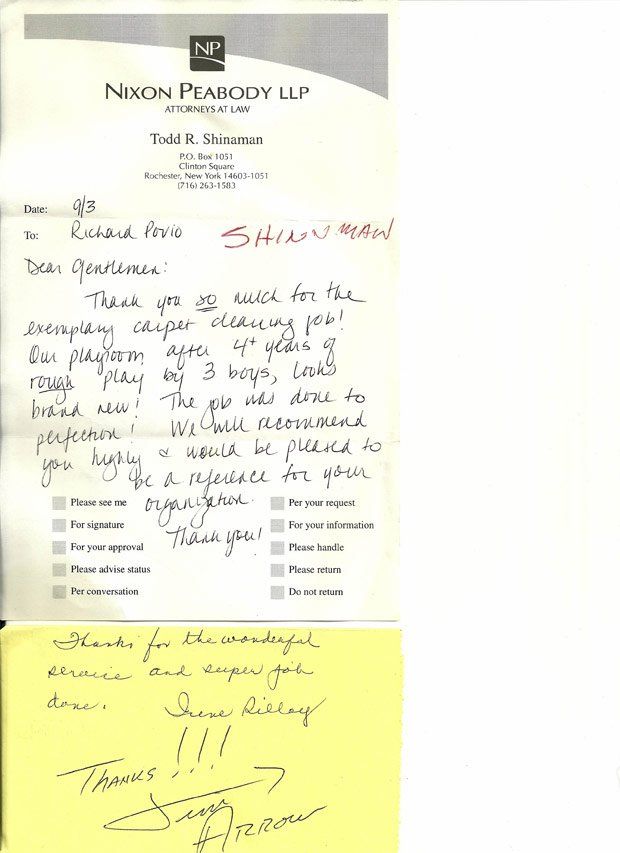 NP
NIXON PEABODY LLP
ATTORNEYS AT LAW
Todd R. Shinaman
P.O. Box 1051
Clinton Square
Rochester, New York 14603-1051
(716) 263-1583
Date: 9/3
To: Richard Povio
SHINNMAN
Dear Gentlemen:
Thank you so much for the
exemplary carpet cleaning job!
Our playroom, after 4+ years of
rough play by 3 boys, looks
brand new! The job was done to
perfection! We will recommend
you highly & would be pleased to
be a reference for your
organization.
Thank you!
Please see me
For signature
For your approval
Please advise status
Per conversation
Per your request
For your information
Please handle
Please return
Do not return
Thanks for the wonderful
service and super job
done. Irene
THANKS !!!
Jim
ARROW